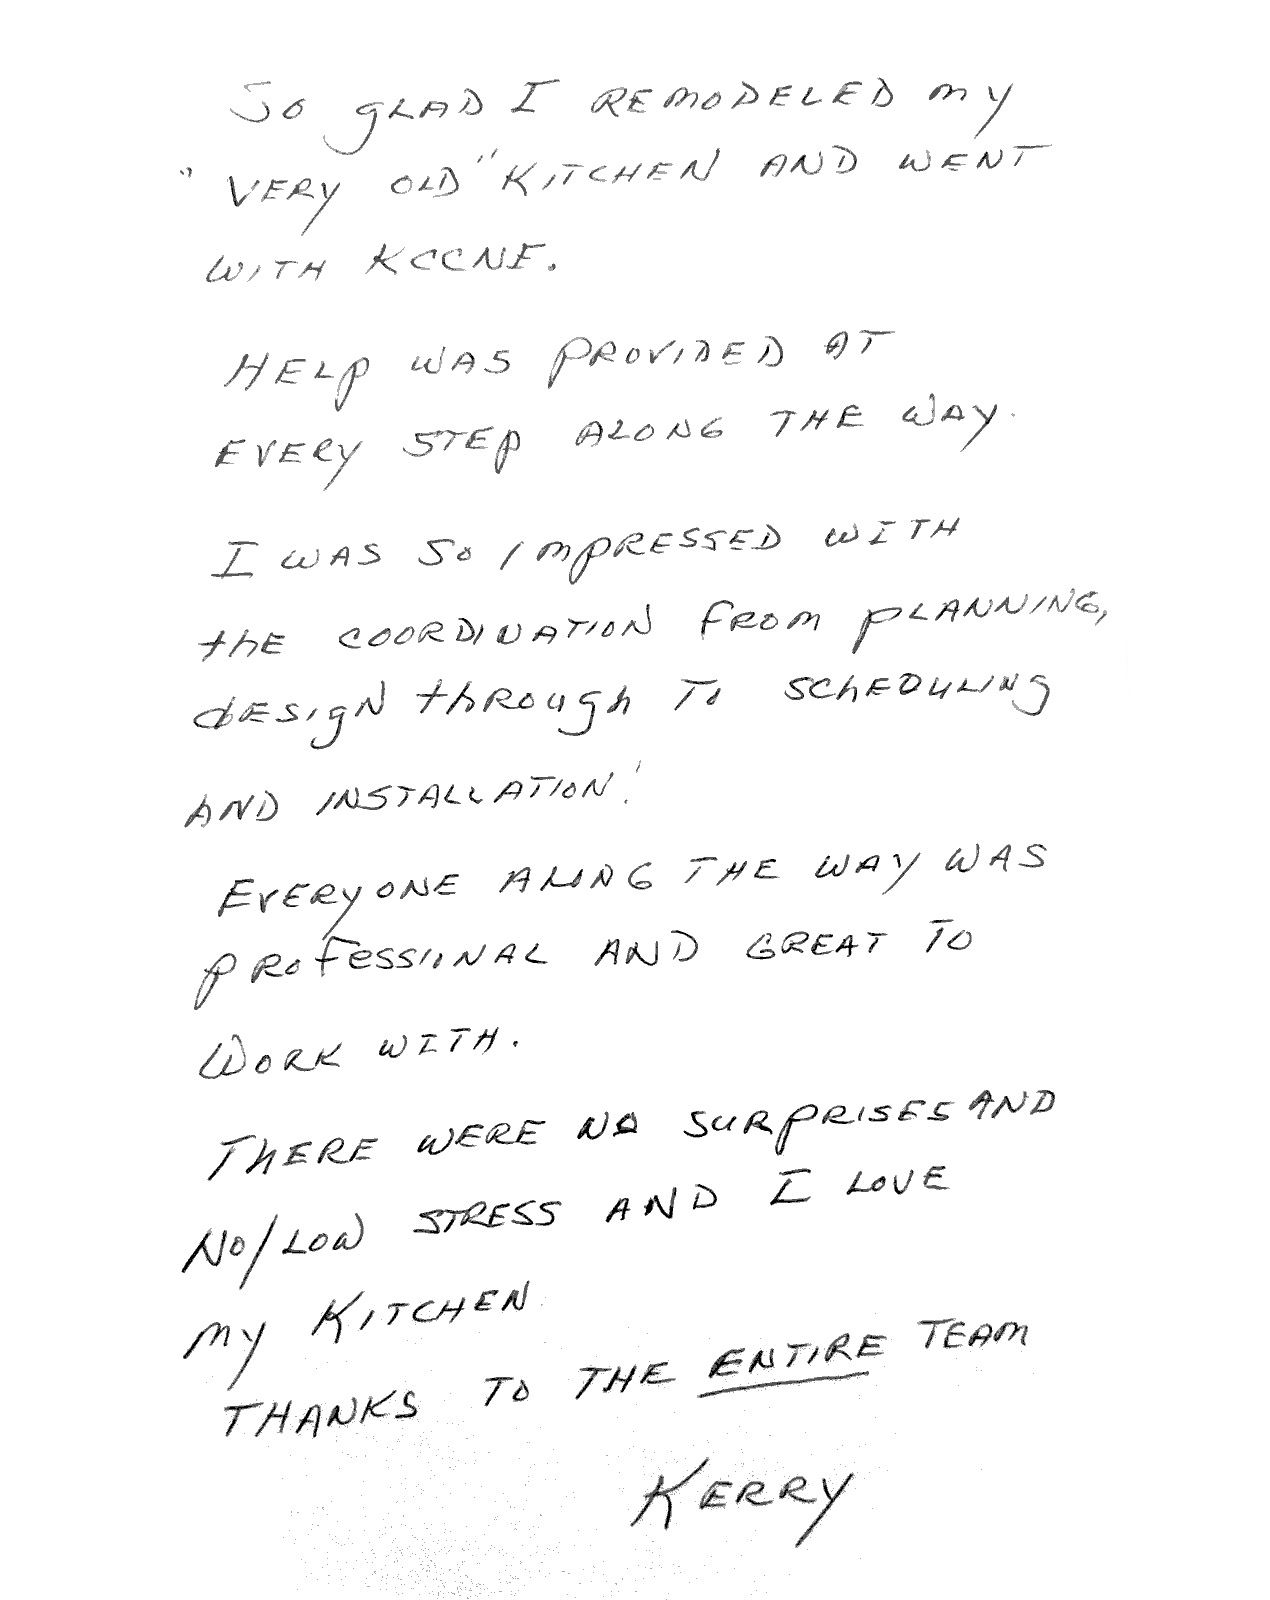 So GLAD I REMODELED my
"VERY OLD" KITCHEN AND WENT
WITH KCCNE.
HELP WAS PROVIDED AT
EVERY STEP ALONG THE WAY.
I WAS SO IMPRESSED WITH
the COORDINATION FROM PLANNING,
dESIgN thROUgh TO SChEDULINg
AND INSTALLATION!
EVERYONE ALONG THE WAY WAS
PROFESSIONAL AND GREAT TO
WORK WITH.
ThERE WERE NO SURPRISES AND
NO/LOW STRESS AND I LOVE
my KITCHEN
THANKS TO THE ENTIRE TEAM
KERRY